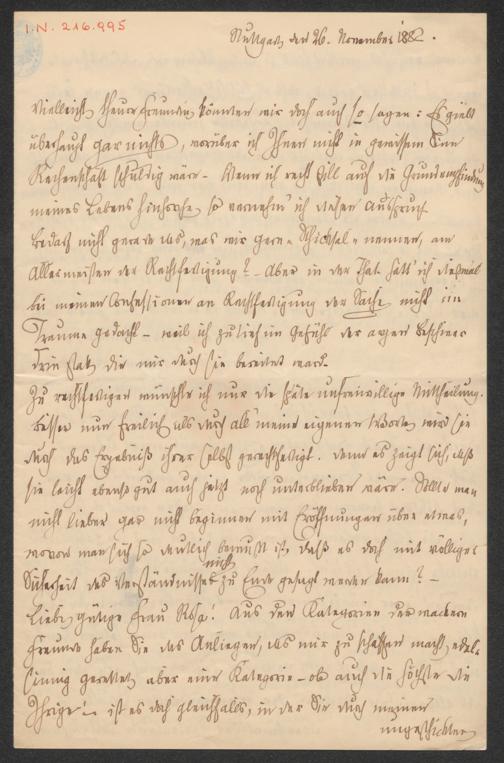 I.N. 216.995
Stuttgart den 26. November 1882.
Vielleicht, theure Freundin, könnten wir doch auch so sagen: Es giebt
überhaupt gar nichts, worüber ich Ihnen nicht in gewissem Sinn
Rechenschaft schuldig wäre – Wenn ich recht still auf die Grundempfindung
meines Lebens hinhorche, so vernehm' ich diesen Ausspruch
Bedarf nicht gerade das, was wir gern „Schicksal“ nennen, am
allermeisten der Rechtfertigung? – Aber in der That hatt' ich diesmal
bei meinen Confessionen an Rechtfertigung der Sache nicht im
Traume gedacht – weil ich zu tief im Gefühl der argen Beschwer
drin stak, die mir durch sie bereitet ward.
Zu rechtfertigen wünschte ich nur die späte unfreiwillige Mittheilung.
Besser nun freilich als durch all' meine eigenen Worte wird sie
durch das Ergebniß ihrer selbst gerechtfertigt. Denn es zeigt sich, daß
sie leicht ebenso gut auch jetzt noch unterblieben wäre. Sollte man
nicht lieber gar nicht beginnen mit Eröffnungen über etwas,
wovon man sich so deutlich bewußt ist, daß es doch mit völliger
Sicherheit des Verständnisses nicht zu Ende gesagt werden kann? –
Liebe, gütige Frau Rosa! Aus den Kategorien der wackern
Freunde haben Sie das Anliegen, das mir zu schaffen macht, edel-
sinnig gerettet, aber eine Kategorie – ob auch die höchste die
Ihrige! – ist es doch gleichfalls, in der Sie durch meinen
ungeschickten